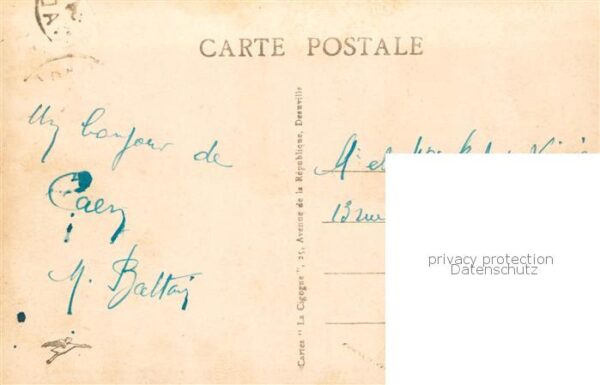 CARTE POSTALE
Un bonjour de
Caen
M.
Cartes " La Cigogne ", 25, Avenue de la République, Deauville
Mr et Mme
13 rue
privacy protection
Datenschutz